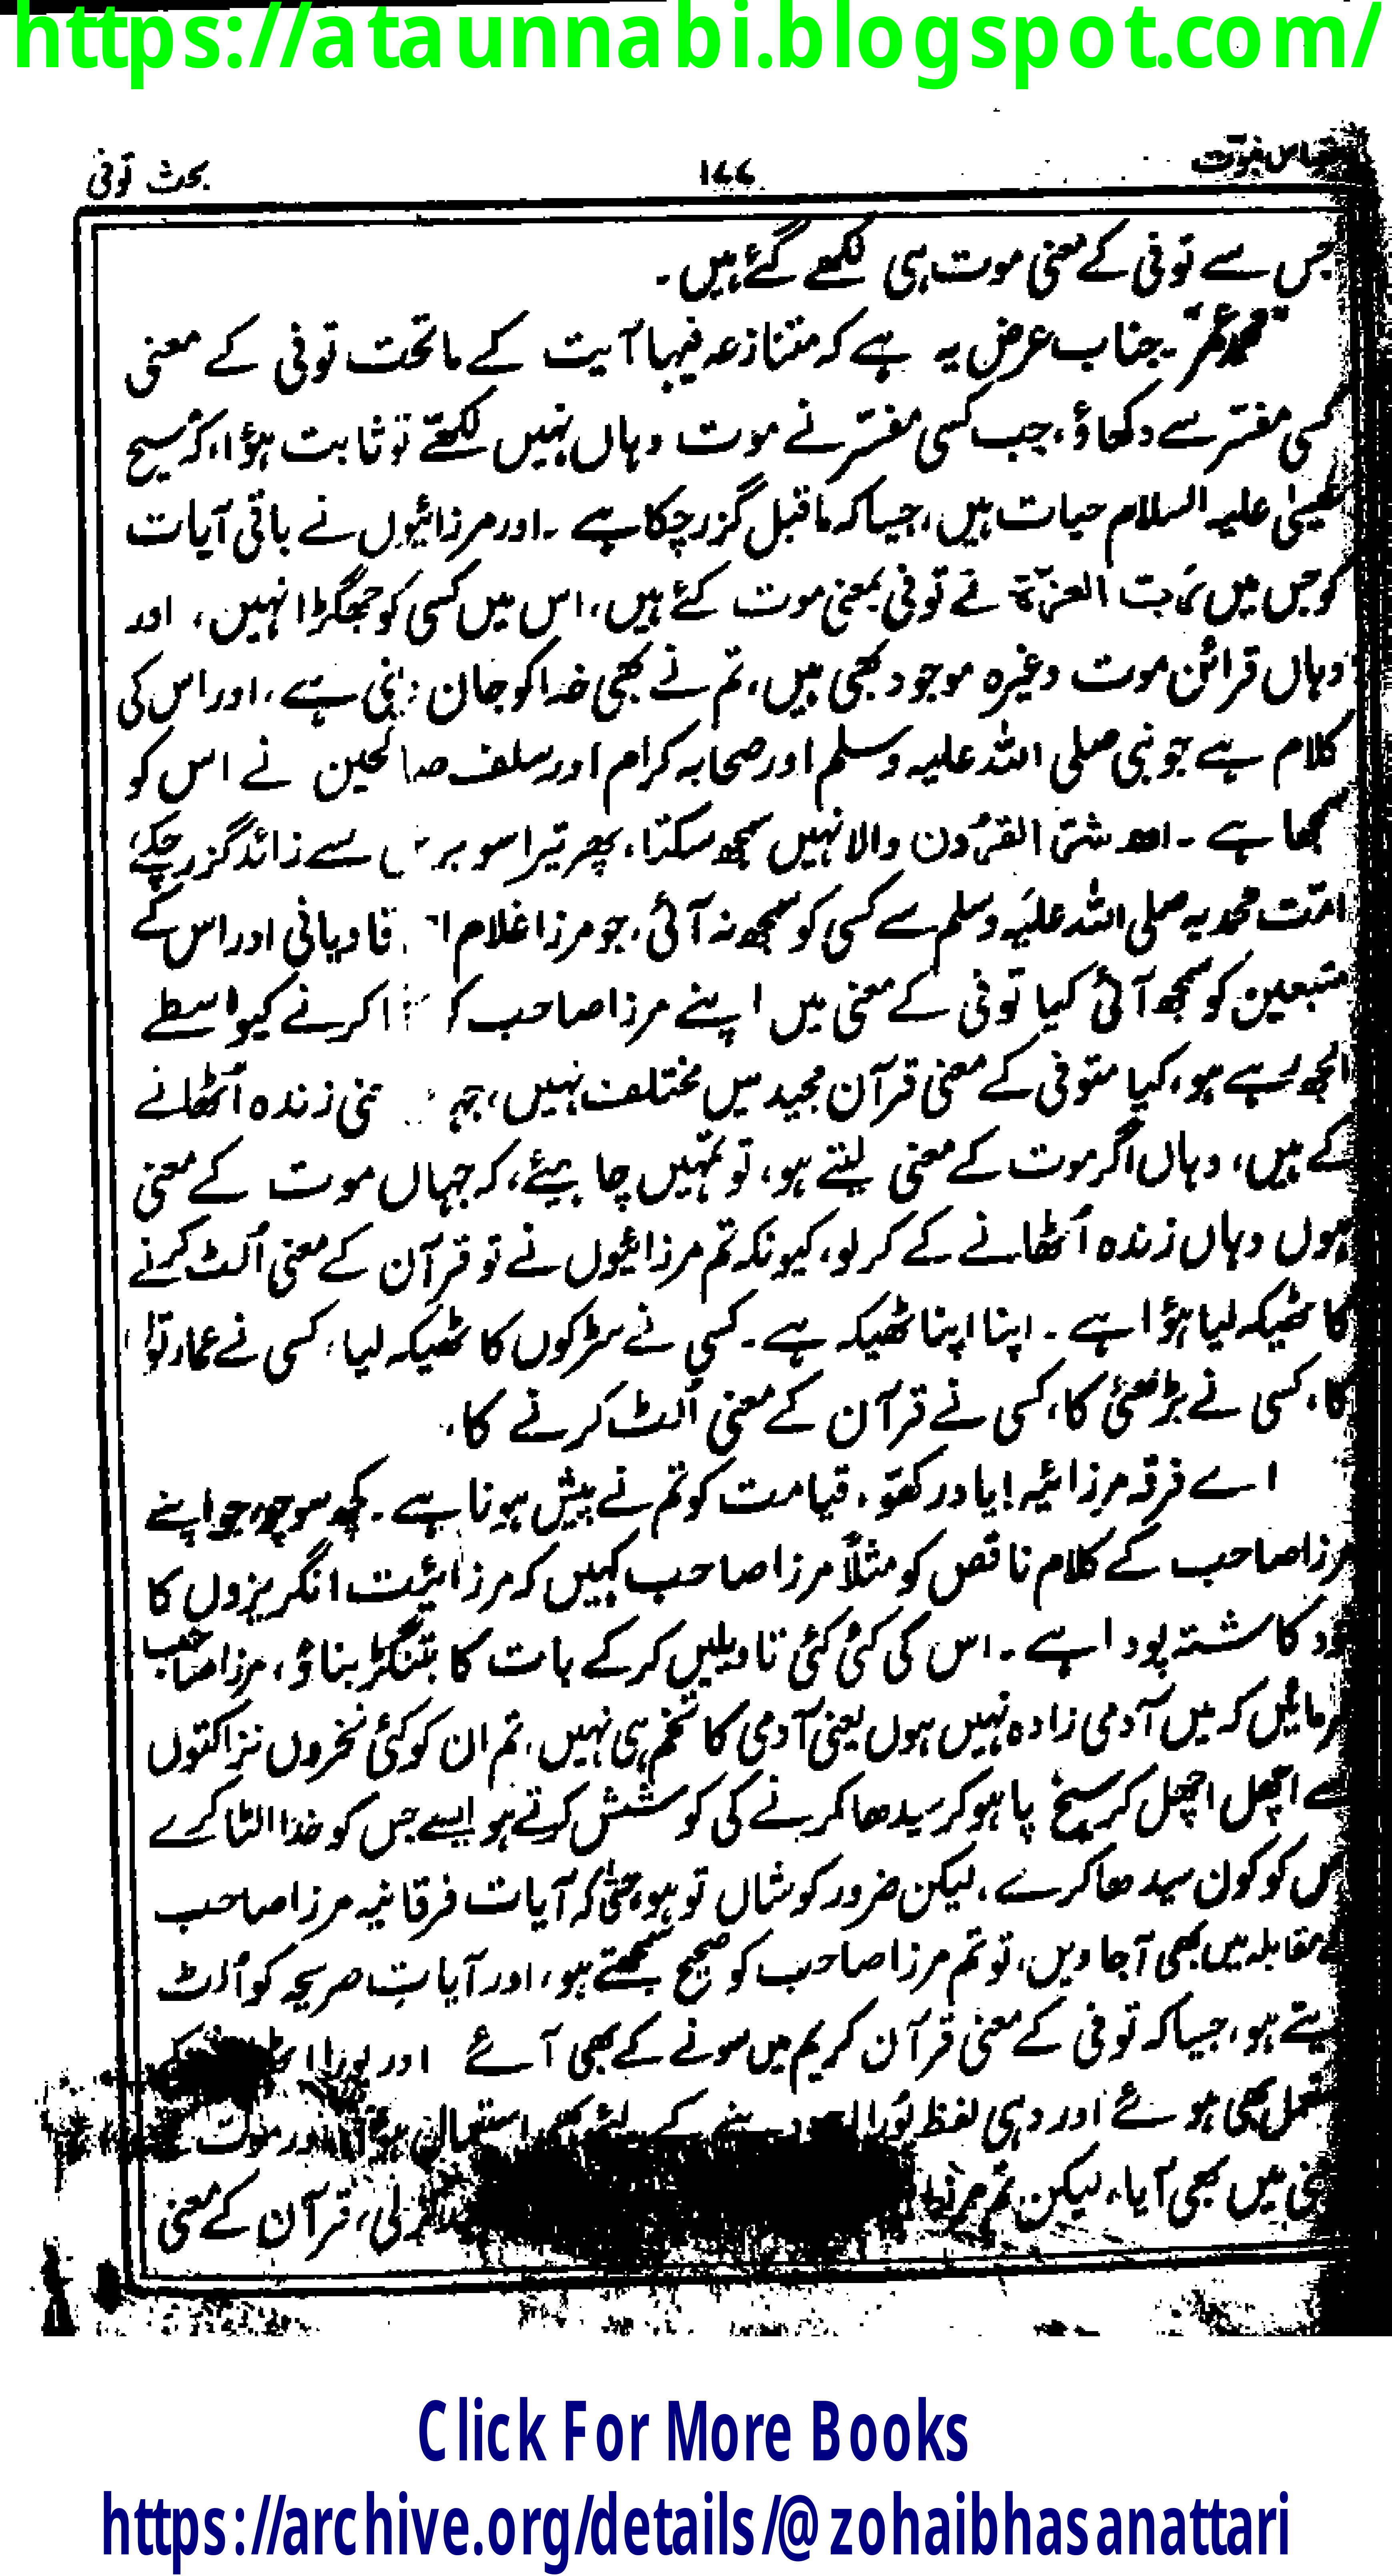 https://ataunnabi.blogspot.com/
مقیاس نبوّت ۱۷۷ بحث توفی
جس سے توفی کے معنی موت ہی لکھے گئے ہیں۔
"محمد عمر"۔ جناب عرض یہ ہے کہ متنازعہ فیہا آیت کے ماتحت توفی کے معنی
کسی مفسّر سے دکھاؤ، جب کسی مفسّر نے موت وہاں نہیں لکھتے تو ثابت ہؤا، کہ مسیح
عیسیٰ علیہ السلام حیات ہیں، جیسا کہ ماقبل گزر چکا ہے ۔ اور مرزائیوں نے باقی آیات
کو جس میں ربّ العزّۃ نے توفی بمعنی موت کئے ہیں، اس میں کسی کو جھگڑا نہیں، اور
وہاں قرائن موت وغیرہ موجود بھی ہیں، تم نے بھی خدا کو جان دینی ہے، اور اس کی
کلام ہے جو نبی صلی اللہ علیہ وسلم اور صحابہ کرام اور سلف صالحین نے اس کو
سمجھا ہے ۔ اور شتّیٰ القرون والا نہیں سمجھ سکتا، پھر تیرا سو برس سے زائد گزر چکے،
امّت محمدیہ صلی اللہ علیہ وسلم سے کسی کو سمجھ نہ آئی، جو مرزا غلام قادیانی اور اس کے
متبعین کو سمجھ آئی کیا توفی کے معنی میں اپنے مرزا صاحب کرنے کیواسطے
الجھ رہے ہو، کیا متوفی کے معنی قرآن مجید میں مختلف نہیں، زندہ اُٹھانے
کے ہیں، وہاں اگر موت کے معنی لیتے ہو، تو تمہیں چاہیئے، کہ جہاں موت کے معنی
ہوں وہاں زندہ اُٹھانے کے کر لو، کیونکہ تم مرزائیوں نے تو قرآن کے معنی اُلٹ کرنے
کا ٹھیکہ لیا ہؤا ہے ۔ اپنا اپنا ٹھیکہ ہے ۔ کسی نے سڑکوں کا ٹھیکہ لیا، کسی نے عمارتوں
کا، کسی نے بڑھئی کا، کسی نے قرآن کے معنی اُلٹ کرنے کا،
اے فرقہ مرزائیہ! یاد رکھو، قیامت کو تم نے پیش ہونا ہے ۔ کچھ سوچو، جو اپنے
مرزا صاحب کے کلام ناقص کو مثلاً مرزا صاحب کہیں کہ مرزائیت انگریزوں کا
خود کاشتہ پودا ہے ۔ اس کی کئی کئی تاویلیں کرکے بات کا بتنگڑ بناؤ، مرزا صاحب
فرمائیں کہ میں آدمی زادہ نہیں ہوں یعنی آدمی کا تخم ہی نہیں، تم ان کو کئی نخروں نزاکتوں
سے اچھل اچھل کر سیخ پا ہو کر سیدھا کرنے کی کوشش کرتے ہو ایسے جس کو خدا الٹا کرے
اس کو کون سیدھا کرے، لیکن ضرور کوشاں تو ہو، حتیٰ کہ آیات فرقانیہ مرزا صاحب
کے مقابلہ میں بھی آجاویں، تو تم مرزا صاحب کو صحیح سمجھتے ہو، اور آیات صریحہ کو اُلٹ
دیتے ہو، جیسا کہ توفی کے معنی قرآن کریم میں سونے کے بھی آئے اور پورا
بھی ہوئے اور وہی لفظ پورا کے لئے بھی استعمال ہؤا اور موت کے
معنی میں بھی آیا، لیکن تم لی، قرآن کے معنی
Click For More Books
https://archive.org/details/@zohaibhasanattari